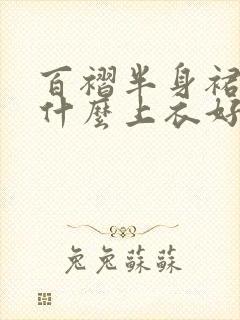 百褶半身裙
什麼上衣好
兔兔蘇蘇